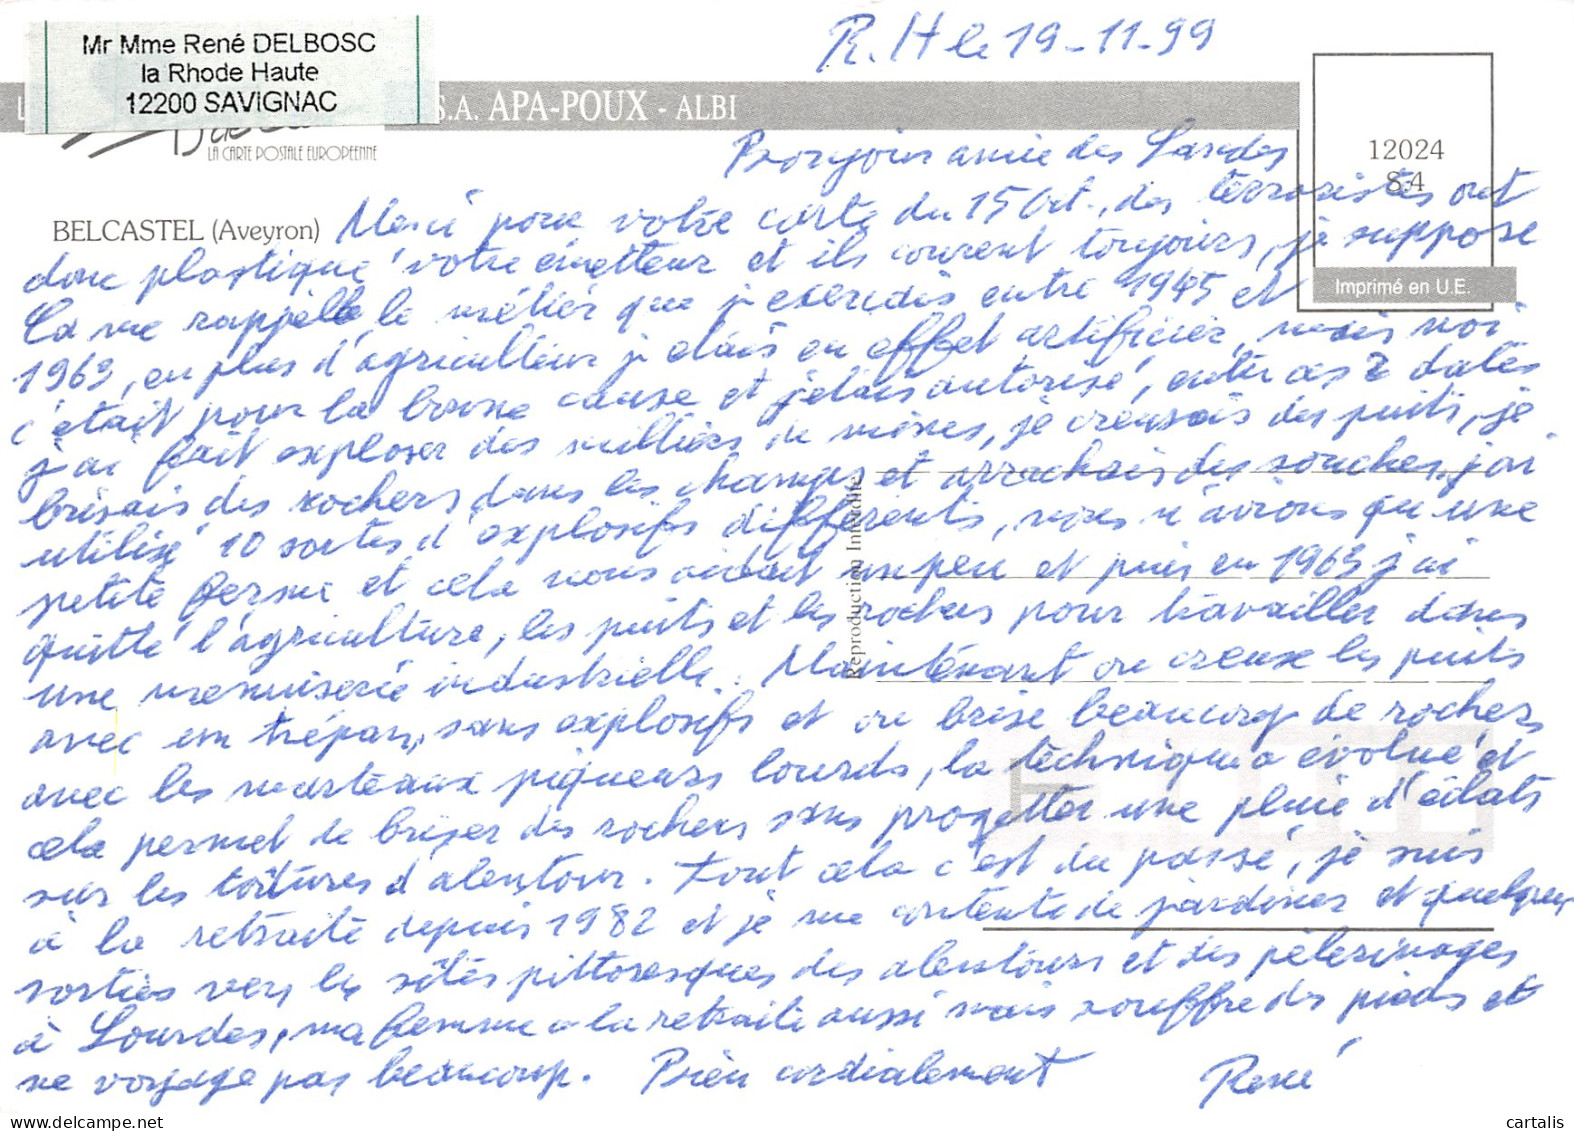 Mr Mme René DELBOSC
la Rhode Haute
12200 SAVIGNAC
R.H le 19-11-99
S.A. APA-POUX - ALBI
LA CARTE POSTALE EUROPEENNE
12024
S4
Imprimé en U.E.
BELCASTEL (Aveyron)
Reproduction Interdite
Bonjour amie des Landes
Merci pour votre carte du 15 Oct., des terroristes ont
donc plastiqué votre émetteur et ils courent toujours, je suppose
Ca me rappelle le métier que j'exercais entre 1945 et
1963, en plus d'agriculteur j'etais en effet artificier, mais moi
c'était pour la bonne cause et j'etais autorisé, entre ces 2 dates
j'ai fait exploser des milliers de mines, je creusais des puits, je
brisais des rochers dans les champs et arrachais des souches, j'ai
utilisé 10 sortes d'explosifs différents, nous n'avions qu'une
petite ferme et cela nous aidait un peu et puis en 1963 j'ai
quitté l'agriculture, les puits et les rochers pour travailler dans
une menuiserie industrielle. Maintenant on creuse les puits
avec un trépan, sans explosifs et on brise beaucoup de rochers
avec les marteaux piqueurs lourds, la technique a évolué et
cela permet de briser des rochers sans progetter une pluie d'éclats
sur les toitures d'alentour. Tout cela c'est du passé, je suis
à la retraite depuis 1982 et je me contente de jardiner et quelques
sorties vers les sites pittoresques des alentours et des pèlerinages
à Lourdes, ma femme a la retraite aussi mais souffre des pieds et
ne voyage pas beaucoup. Bien cordialement René